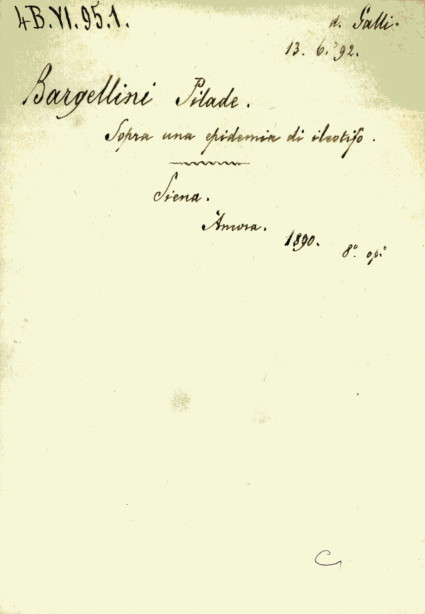 4B.VI.95.1.
d. Galli.
13. 6. 92.
Bargellini Pilade.
Sopra una epidemia di ileotifo.
Siena.
Ancora.
1890.
8°. op.°
C